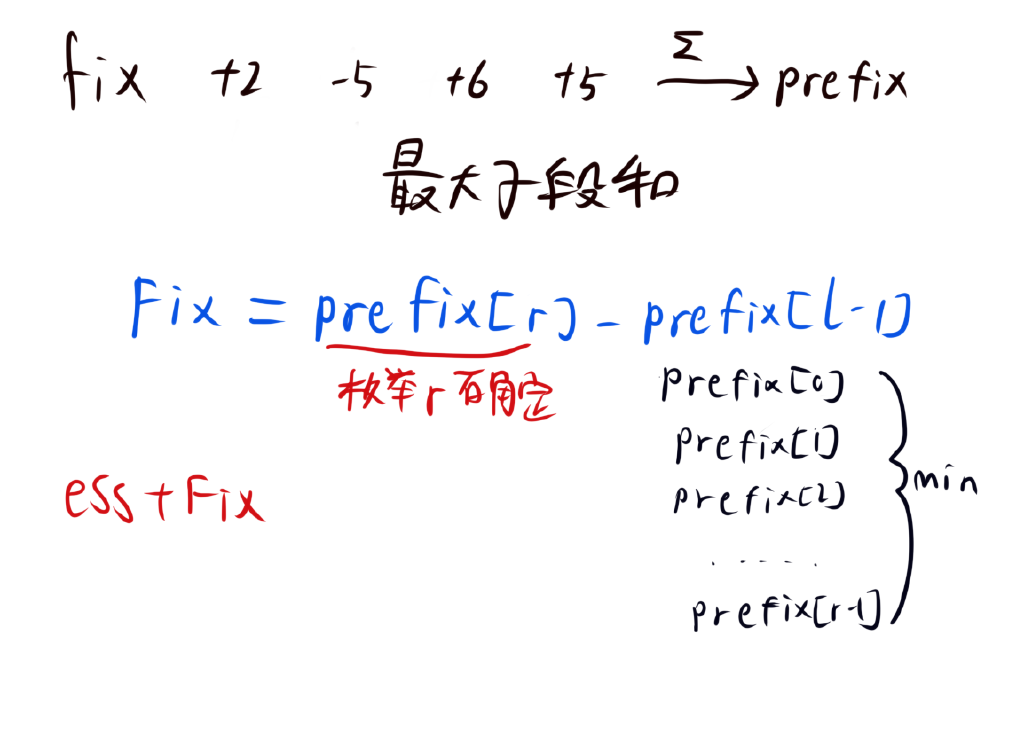 fix +2 -5 +6 +5 Σ prefix
最大子段和
Fix = prefix[r] - prefix[l-1]
枚举r 可确定
prefix[0]
prefix[1]
prefix[2]
......
prefix[r-1]
min
ess + Fix